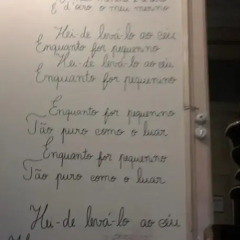 É d'oiro o meu menino
Hei-de levá-lo ao céu
Enquanto for pequenino
Hei-de levá-lo ao céu
Enquanto for pequenino
Enquanto for pequenino
Tão puro como o luar
Enquanto for pequenino
Tão puro como o luar
Hei-de levá-lo ao céu